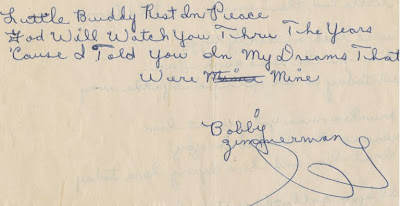 Little Buddy Rest In Peace
God Will Watch You Thru The Years
'Cause I Told You In My Dreams That
Were Mine
Bobby
Zimmerman